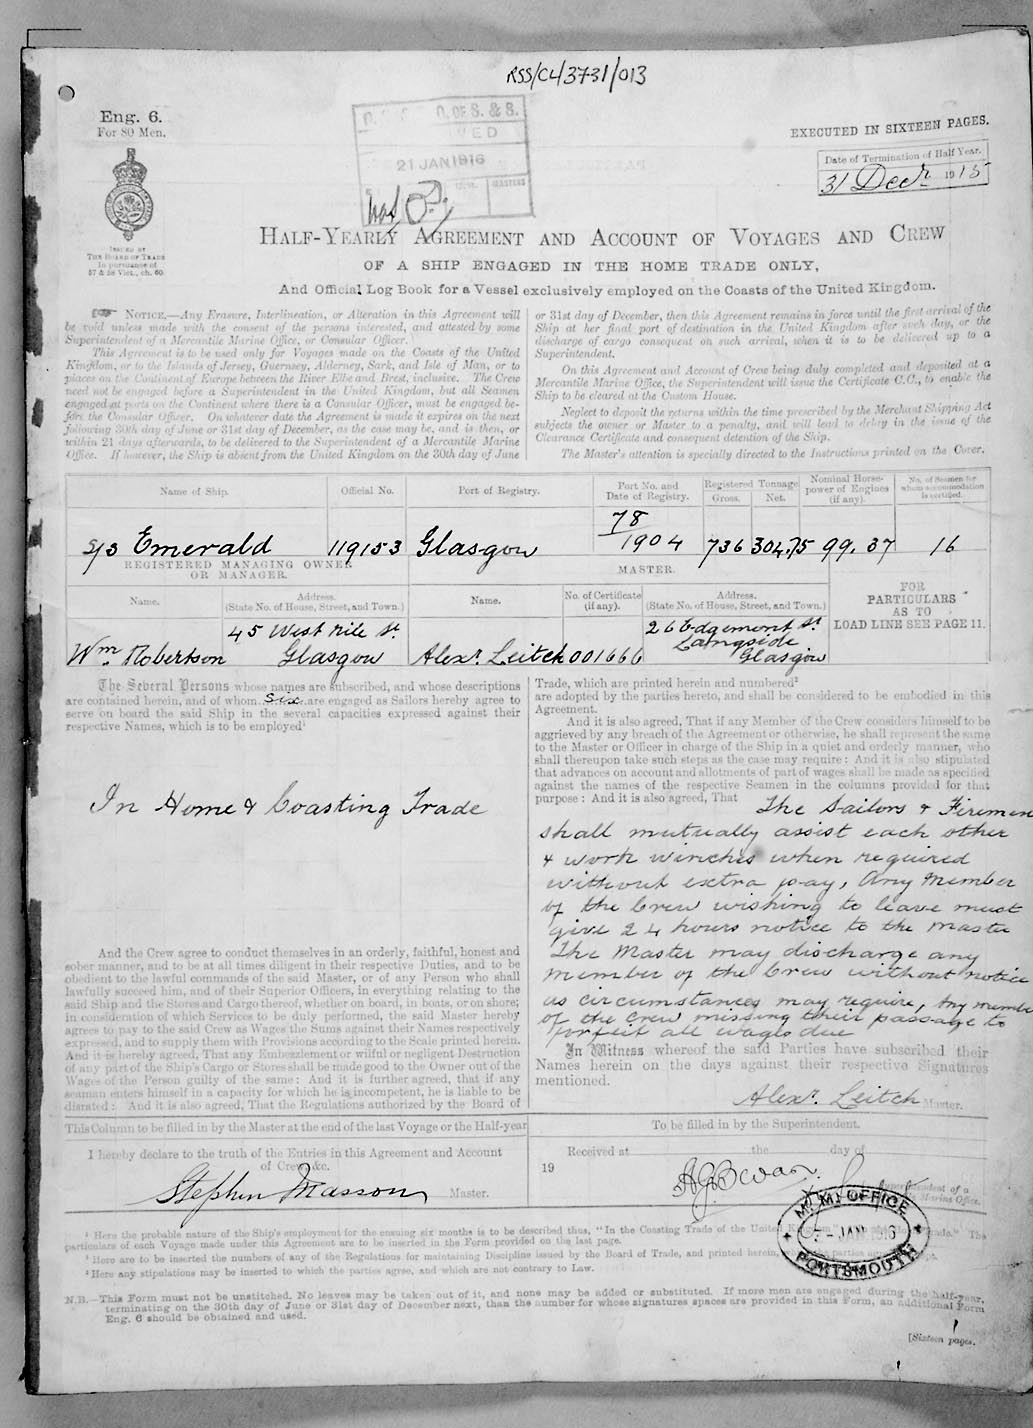 RSS/CL/3731/013
Eng. 6.
For 80 Men.
ISSUED BY
THE BOARD OF TRADE
In pursuance of
57 & 58 Vict., ch. 60.
OF S. & S.
21 JAN 1916
MASTERS
EXECUTED IN SIXTEEN PAGES.
Date of Termination of Half Year.
31 Decr. 1915
HALF-YEARLY AGREEMENT AND ACCOUNT OF VOYAGES AND CREW
OF A SHIP ENGAGED IN THE HOME TRADE ONLY,
And Official Log Book for a Vessel exclusively employed on the Coasts of the United Kingdom.
NOTICE.—Any Erasure, Interlineation, or Alteration in this Agreement will
be void unless made with the consent of the persons interested, and attested by some
Superintendent of a Mercantile Marine Office, or Consular Officer.
This Agreement is to be used only for Voyages made on the Coasts of the United
Kingdom, or to the Islands of Jersey, Guernsey, Alderney, Sark, and Isle of Man, or to
places on the Continent of Europe between the River Elbe and Brest, inclusive. The Crew
need not be engaged before a Superintendent in the United Kingdom, but all Seamen
engaged at ports on the Continent where there is a Consular Officer, must be engaged be-
fore the Consular Officer. On whatever date the Agreement is made it expires on the next
following 30th day of June or 31st day of December, as the case may be, and is then, or
within 21 days afterwards, to be delivered to the Superintendent of a Mercantile Marine
Office. If however, the Ship is absent from the United Kingdom on the 30th day of June
or 31st day of December, then this Agreement remains in force until the first arrival of the
Ship at her final port of destination in the United Kingdom after such day, or the
discharge of cargo consequent on such arrival, when it is to be delivered up to a
Superintendent.
On this Agreement and Account of Crew being duly completed and deposited at a
Mercantile Marine Office, the Superintendent will issue the Certificate C.C., to enable the
Ship to be cleared at the Custom House.
Neglect to deposit the returns within the time prescribed by the Merchant Shipping Act
subjects the owner or Master to a penalty, and will lead to delay in the issue of the
Clearance Certificate and consequent detention of the Ship.
The Master's attention is specially directed to the Instructions printed on the Cover.
Name of Ship.
Official No.
Port of Registry.
Port No. and
Date of Registry.
Registered Tonnage
Gross.
Net.
Nominal Horse-
power of Engines
(if any).
No. of Seamen for
whom accommodation
is certified.
S/S Emerald
119153
Glasgow
78
1904
736
304.75
99.37
16
REGISTERED MANAGING OWNER
OR MANAGER.
MASTER.
Name.
Address.
(State No. of House, Street, and Town.)
Name.
No. of Certificate
(if any).
Address.
(State No. of House, Street, and Town.)
FOR
PARTICULARS
AS TO
LOAD LINE SEE PAGE 11.
Wm. Robertson
45 West Nile St.
Glasgow
Alexr. Leitch
001666
26 Edgemont St
Langside
Glasgow
The Several Persons whose names are subscribed, and whose descriptions
are contained herein, and of whom six are engaged as Sailors hereby agree to
serve on board the said Ship in the several capacities expressed against their
respective Names, which is to be employed¹
In Home & Coasting Trade
And the Crew agree to conduct themselves in an orderly, faithful, honest and
sober manner, and to be at all times diligent in their respective Duties, and to be
obedient to the lawful commands of the said Master, or of any Person who shall
lawfully succeed him, and of their Superior Officers, in everything relating to the
said Ship and the Stores and Cargo thereof, whether on board, in boats, or on shore;
in consideration of which Services to be duly performed, the said Master hereby
agrees to pay to the said Crew as Wages the Sums against their Names respectively
expressed, and to supply them with Provisions according to the Scale printed herein.
And it is hereby agreed, That any Embezzlement or wilful or negligent Destruction
of any part of the Ship's Cargo or Stores shall be made good to the Owner out of the
Wages of the Person guilty of the same: And it is further agreed, that if any
seaman enters himself in a capacity for which he is incompetent, he is liable to be
disrated: And it is also agreed, That the Regulations authorized by the Board of
Trade, which are printed herein and numbered²
are adopted by the parties hereto, and shall be considered to be embodied in this
Agreement.
And it is also agreed, That if any Member of the Crew considers himself to be
aggrieved by any breach of the Agreement or otherwise, he shall represent the same
to the Master or Officer in charge of the Ship in a quiet and orderly manner, who
shall thereupon take such steps as the case may require: And it is also stipulated
that advances on account and allotments of part of wages shall be made as specified
against the names of the respective Seamen in the columns provided for that
purpose: And it is also agreed, That The Sailors & Firemen
shall mutually assist each other
& work winches when required
without extra pay, Any Member
of the Crew wishing to leave must
give 24 hours notice to the Master
The Master may discharge any
member of the Crew without notice
as circumstances may require, Any member
of the Crew missing their passage to
forfeit all wages due
In Witness whereof the said Parties have subscribed their
Names herein on the days against their respective Signatures
mentioned.
Alexr. Leitch Master.
This Column to be filled in by the Master at the end of the last Voyage or the Half-year
To be filled in by the Superintendent.
I hereby declare to the truth of the Entries in this Agreement and Account
of Crew &c.
Stephen Masson Master.
Received at the day of
19
Superintendent of a
Marine Office.
M. M. OFFICE
7 - JAN 1916
PORTSMOUTH
¹ Here the probable nature of the Ship's employment for the ensuing six months is to be described thus, "In the Coasting Trade of the United Kingdom" Trade." The
particulars of each Voyage made under this Agreement are to be inserted in the Form provided on the last page.
² Here are to be inserted the numbers of any of the Regulations for maintaining Discipline issued by the Board of Trade, and printed herein,
³ Here any stipulations may be inserted to which the parties agree, and which are not contrary to Law.
N.B.—This Form must not be unstitched. No leaves may be taken out of it, and none may be added or substituted. If more men are engaged during the half-year,
terminating on the 30th day of June or 31st day of December next, than the number for whose signatures spaces are provided in this Form, an additional Form
Eng. 6 should be obtained and used.
[Sixteen pages.